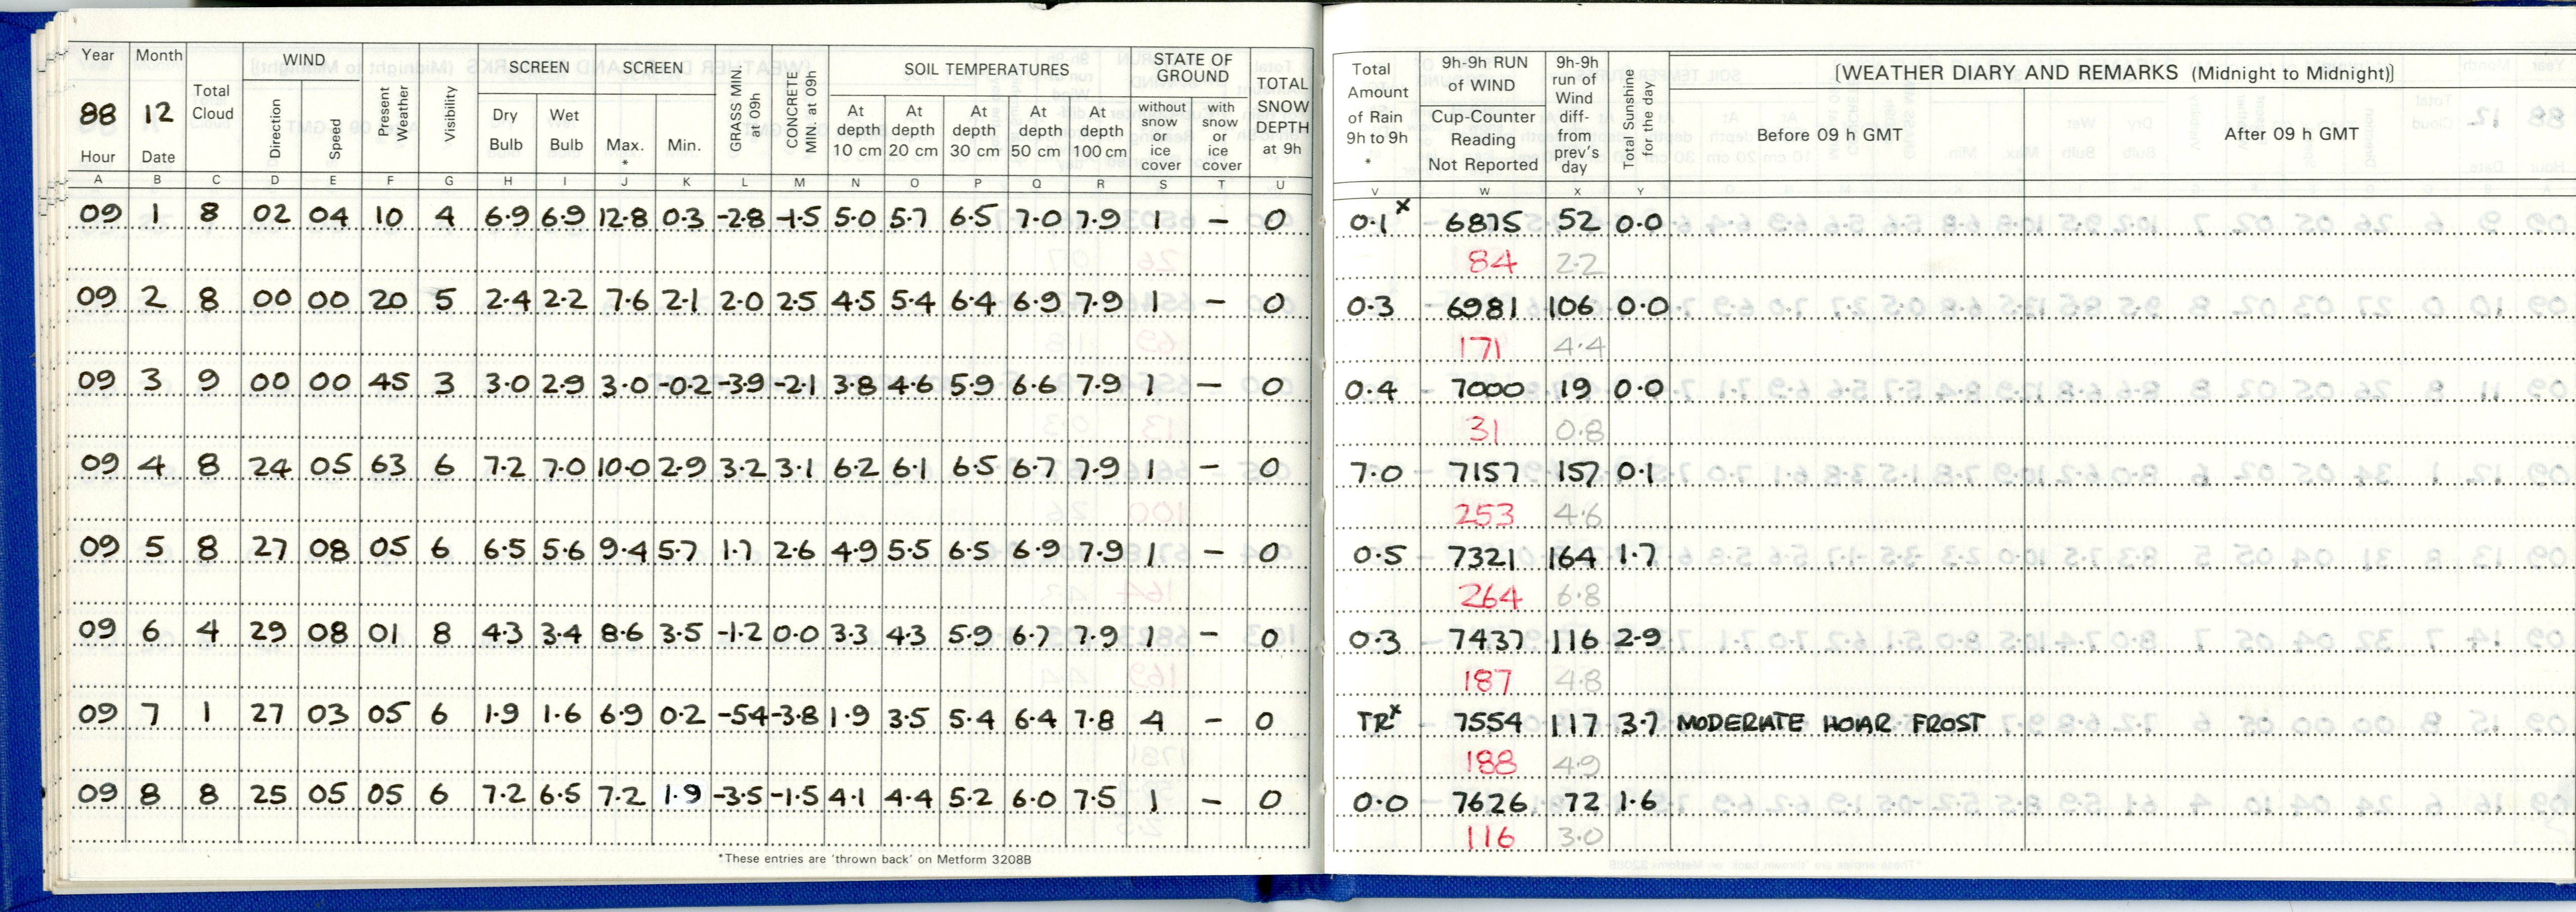 Year Month WIND SCREEN SCREEN SOIL TEMPERATURES STATE OF GROUND
88 12 Total Cloud Direction Speed Present Weather Visibility Dry Bulb Wet Bulb Max. * Min. GRASS MIN. at 09h CONCRETE MIN. at 09h At depth 10 cm At depth 20 cm At depth 30 cm At depth 50 cm At depth 100 cm without snow or ice cover with snow or ice cover TOTAL SNOW DEPTH at 9h
Hour Date
Total Amount of Rain 9h to 9h * 9h-9h RUN of WIND Cup-Counter Reading Not Reported 9h-9h run of Wind diff- from prev's day Total Sunshine for the day [WEATHER DIARY AND REMARKS (Midnight to Midnight)]
Before 09 h GMT After 09 h GMT
A B C D E F G H I J K L M N O P Q R S T U V W X Y
09 1 8 02 04 10 4 6.9 6.9 12.8 0.3 -2.8 -1.5 5.0 5.7 6.5 7.0 7.9 1 - 0 0.1x 6875 52 0.0
84 2.2
09 2 8 00 00 20 5 2.4 2.2 7.6 2.1 2.0 2.5 4.5 5.4 6.4 6.9 7.9 1 - 0 0.3 6981 106 0.0
171 4.4
09 3 9 00 00 45 3 3.0 2.9 3.0 -0.2 -3.9 -2.1 3.8 4.6 5.9 6.6 7.9 1 - 0 0.4 7000 19 0.0
31 0.8
09 4 8 24 05 63 6 7.2 7.0 10.0 2.9 3.2 3.1 6.2 6.1 6.5 6.7 7.9 1 - 0 7.0 7157 157 0.1
253 4.6
09 5 8 27 08 05 6 6.5 5.6 9.4 5.7 1.7 2.6 4.9 5.5 6.5 6.9 7.9 1 - 0 0.5 7321 164 1.7
264 6.8
09 6 4 29 08 01 8 4.3 3.4 8.6 3.5 -1.2 0.0 3.3 4.3 5.9 6.7 7.9 1 - 0 0.3 7437 116 2.9
187 4.8
09 7 1 27 03 05 6 1.9 1.6 6.9 0.2 -5.4 -3.8 1.9 3.5 5.4 6.4 7.8 4 - 0 TRx 7554 117 3.7 MODERATE HOAR FROST
188 4.9
09 8 8 25 05 05 6 7.2 6.5 7.2 1.9 -3.5 -1.5 4.1 4.4 5.2 6.0 7.5 1 - 0 0.0 7626 72 1.6
116 3.0
*These entries are 'thrown back' on Metform 3208B